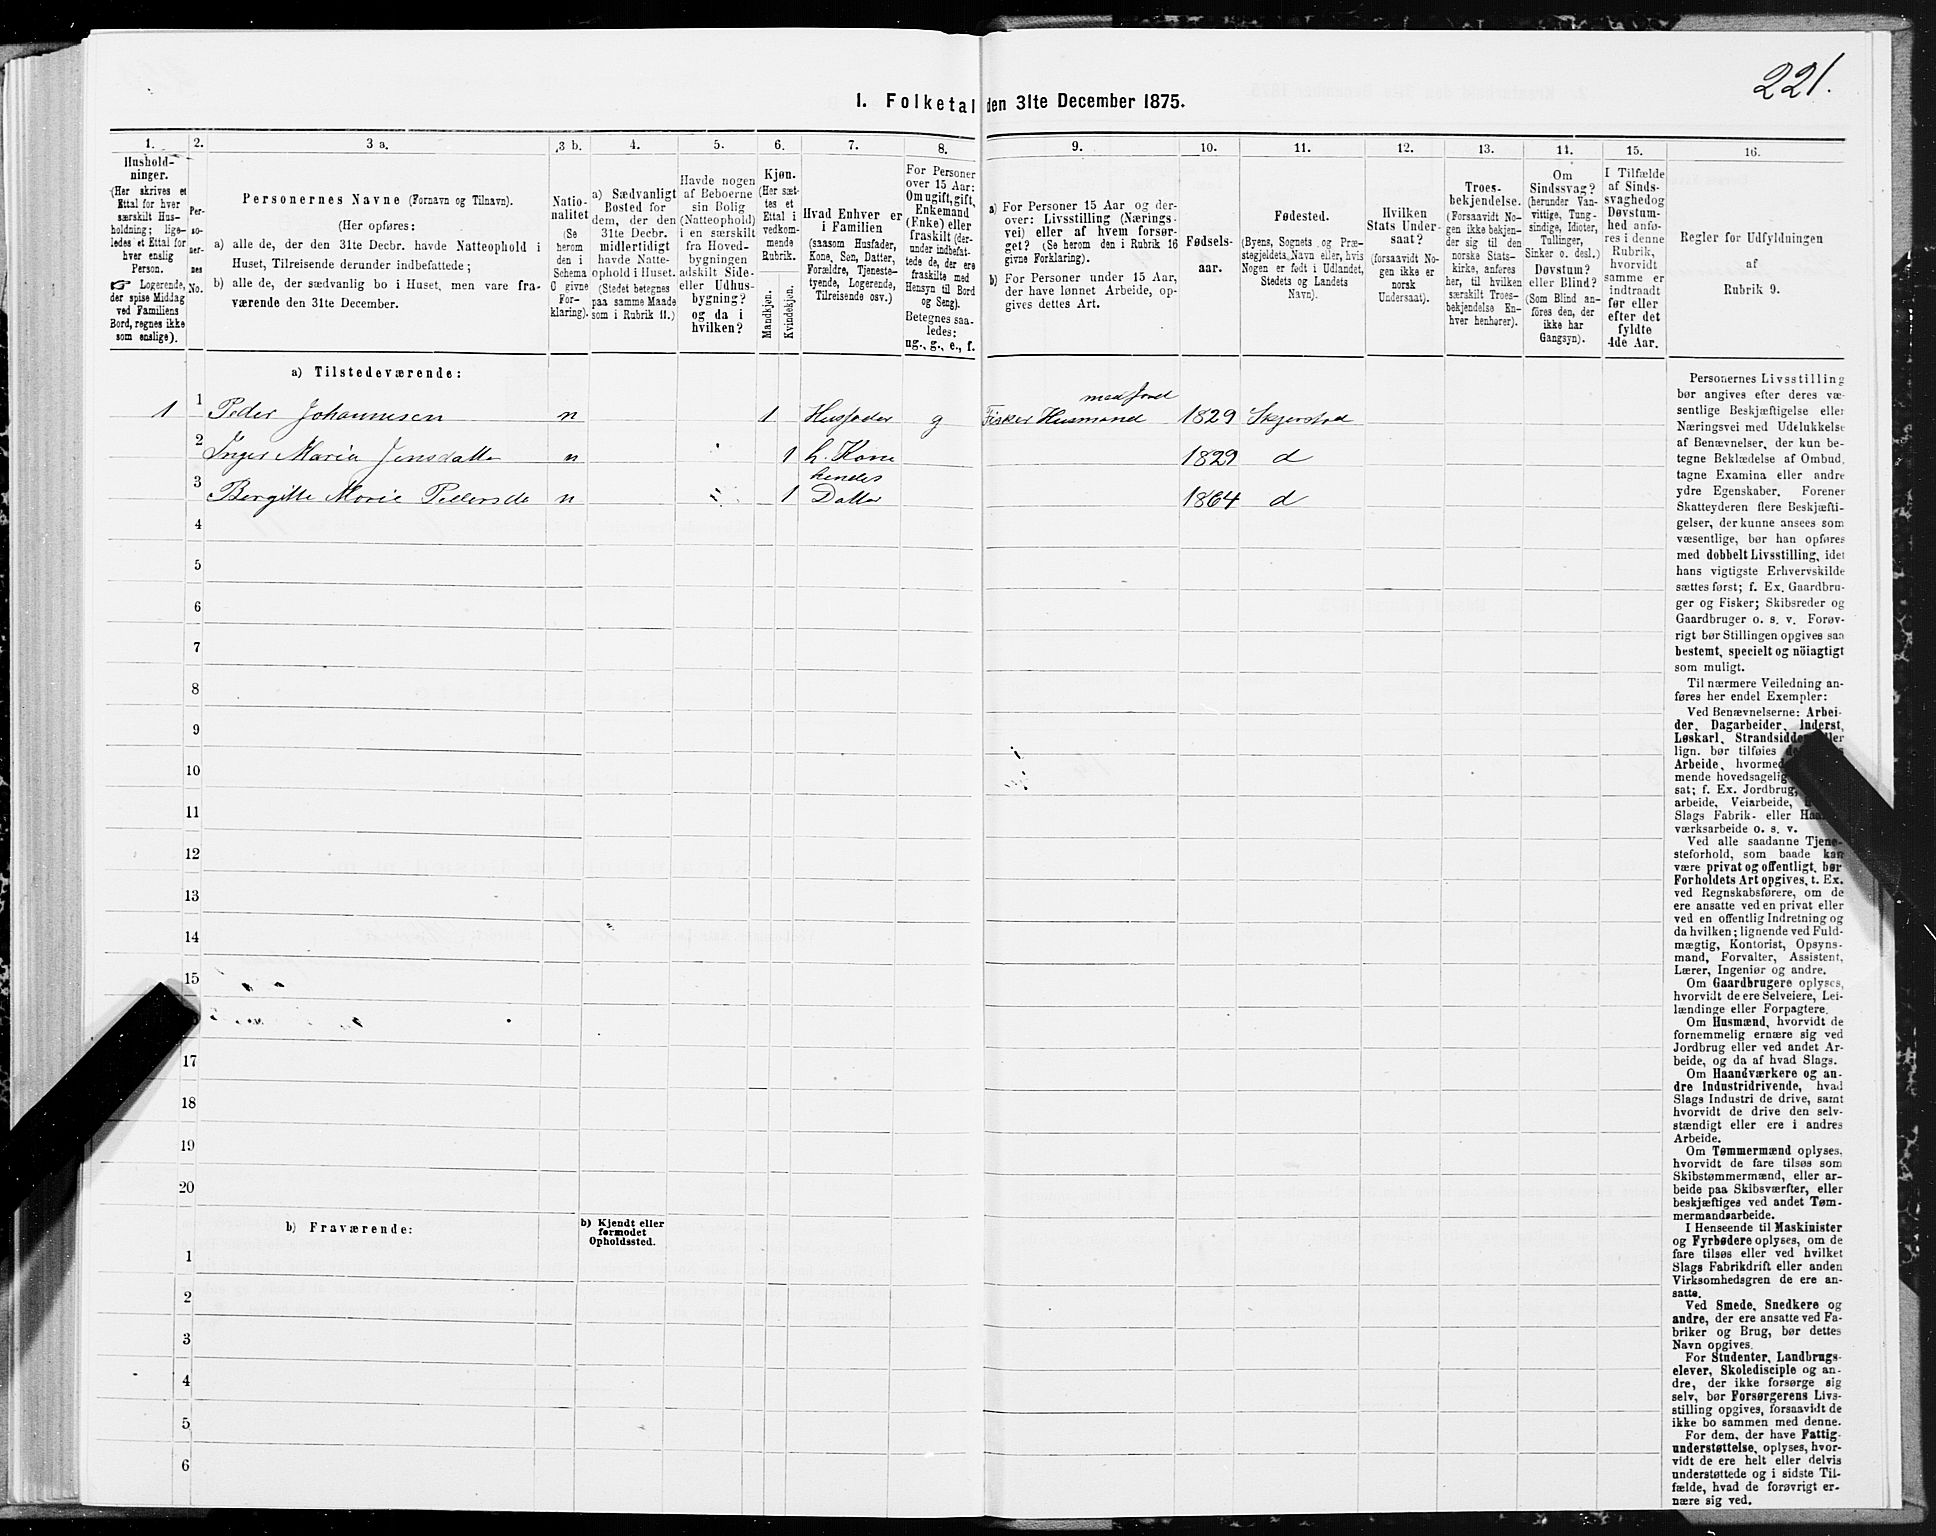 221.
I. Folketal den 31te December 1875.
1. 2. 3 a. 3 b. 4. 5. 6. 7. 8. 9. 10. 11. 12. 13. 14. 15. 16.
Hushold-
ninger.
(Her skrives et
Ettal for hver
særskilt Hus-
holdning; lige-
ledes et Ettal for
hver enslig
Person.
☞ Logerende,
der spise Middag
ved Familiens
Bord, regnes ikke
som enslige).
Per-
so-
ner-
nes
No.
Personernes Navne (Fornavn og Tilnavn).
(Her opføres:
a) alle de, der den 31te Decbr. havde Natteophold i
Huset, Tilreisende derunder indbefattede;
b) alle de, der sædvanlig bo i Huset, men vare fra-
værende den 31te December.
Natio-
nalitet
(Se
herom
den i
Schema
C givne
For-
klaring).
a) Sædvanligt
Bosted for
dem, der den
31te Decbr.
midlertidigt
havde Natte-
ophold i Huset.
(Stedet betegnes
paa samme Maade
som i Rubrik 11.)
Havde nogen
af Beboerne
sin Bolig
(Natteophold)
i en særskilt
fra Hoved-
bygningen
adskilt Side-
eller Udhus-
bygning?
og da i
hvilken?
Kjøn.
(Her sæt-
tes et
Ettal i
vedkom-
mende
Rubrik.
Mandkjøn.
Kvindekjøn.
Hvad Enhver er
i Familien
(saasom Husfader,
Kone, Søn, Datter,
Forældre, Tjeneste-
tyende, Logerende,
Tilreisende osv.)
For Personer
over 15 Aar:
Om ugift, gift,
Enkemand
(Enke) eller
fraskilt (der-
under indbefat-
tede de, der ere
fraskilte med
Hensyn til Bord
og Seng).
Betegnes saa-
ledes:
ug., g., e., f.
a) For Personer 15 Aar og der-
over: Livsstilling (Nærings-
vei) eller af hvem forsør-
get? (Se herom den i Rubrik 16
givne Forklaring).
b) For Personer under 15 Aar,
der have lønnet Arbeide, op-
gives dettes Art.
Fødsels-
aar.
Fødested.
(Byens, Sognets og Præ-
stegjeldets Navn eller, hvis
Nogen er født i Udlandet,
Stedets og Landets
Navn).
Hvilken
Stats Under-
saat?
(forsaavidt No-
gen ikke er
norsk
Undersaat).
Troes-
bekjendelse.
(Forsaavidt No-
gen ikke bekjen-
der sig til den
norske Stats-
kirke, anføres
her, til hvilken
særskilt Troes-
bekjendelse En-
hver henhører).
Om
Sindssvag?
(herunder Van-
vittige, Tung-
sindige, Idioter,
Tullinger,
Sinker o. desl.)
Døvstum?
eller Blind?
(Som Blind an-
føres den, der
ikke har
Gangsyn).
I Tilfælde
af Sinds-
svaghed og
Døvstum-
hed anfø-
res i denne
Rubrik,
hvorvidt
samme er
indtraadt
før eller
efter det
fyldte
4de Aar.
Regler for Udfyldningen
af
Rubrik 9.
a) Tilstedeværende:
med Jord
1 1 Peder Johannesen n 1 Husfader g Fisker Husmand 1829 Skjerstad
2 Inger Maria Jensdatte n 1 h. Kone 1829 d
hendes
3 Bergitte Marie Pedersde n 1 Datter 1864 d
4
5
6
7
8
9
10
11
12
13
14
15
17
18
19
20
b) Fraværende:
b) Kjendt eller
formodet
Opholdssted.
1
2
3
4
5
6
Personernes Livsstilling
bør angives efter deres væ-
sentlige Beskjæftigelse eller
Næringsvei med Udelukkelse
af Benævnelser, der kun be-
tegne Beklædelse af Ombud,
tagne Examina eller andre
ydre Egenskaber. Forener
Skatteyderen flere Beskjæfti-
gelser, der kunne ansees som
væsentlige, bør han opføres
med dobbelt Livsstilling, idet
hans vigtigste Erhvervskilde
sættes først; f. Ex. Gaardbru-
ger og Fisker; Skibsreder og
Gaardbruger o. s. v. Forøv-
rigt bør Stillingen opgives saa
bestemt, specielt og nöiagtigt
som muligt.
Til nærmere Veiledning an-
føres her endel Exempler:
Ved Benævnelserne: Arbei-
der, Dagarbeider, Inderst,
Løskarl, Strandsidder eller
lign. bør tilføies
Arbeide, hvormed
mende hovedsagelig
sat; f. Ex. Jordbrug,
arbeide, Veiarbeide,
Slags Fabrik- eller
værksarbeide o. s. v.
Ved alle saadanne Tjene-
steforhold, som baade kan
være privat og offentligt, bør
Forholdets Art opgives, t. Ex.
ved Regnskabsførere, om de
ere ansatte ved en privat eller
ved en offentlig Indretning og
da hvilken; lignende ved Fuld-
mægtig, Kontorist, Opsyns-
mand, Forvalter, Assistent,
Lærer, Ingeniør og andre.
Om Gaardbrugere oplyses,
hvorvidt de ere Selveiere, Lei-
lændinge eller Forpagtere.
Om Husmænd, hvorvidt de
fornemmelig ernære sig ved
Jordbrug eller ved andet Ar-
beide, og da af hvad Slags.
Om Haandværkere og an-
dre Industridrivende, hvad
Slags Industri de drive, samt
hvorvidt de drive den selv-
stændigt eller ere i andres
Arbeide.
Om Tømmermænd oplyses,
hvorvidt de fare tilsøs som
Skibstømmermænd, eller ar-
beide paa Skibsværfter, eller
beskjæftiges ved andet Tøm-
mermandsarbeide.
I Henseende til Maskinister
og Fyrbødere oplyses, om de
fare tilsøs eller ved hvilket
Slags Fabrikdrift eller anden
Virksomhedsgren de ere an-
satte.
Ved Smede, Snedkere og
andre, der ere ansatte ved Fa-
briker og Brug, bør dettes
Navn opgives.
For Studenter, Landbrugs-
elever, Skoledisciple og an-
dre, der ikke forsørge sig
selv, bør Forsørgerens Livs-
stilling opgives, forsaavidt de
ikke bo sammen med denne.
For dem, der have Fattig-
understøttelse, oplyses, hvor-
vidt de ere helt eller delvis
understøttede og i sidste Til-
fælde, hvad de forøvrigt er-
nære sig ved.